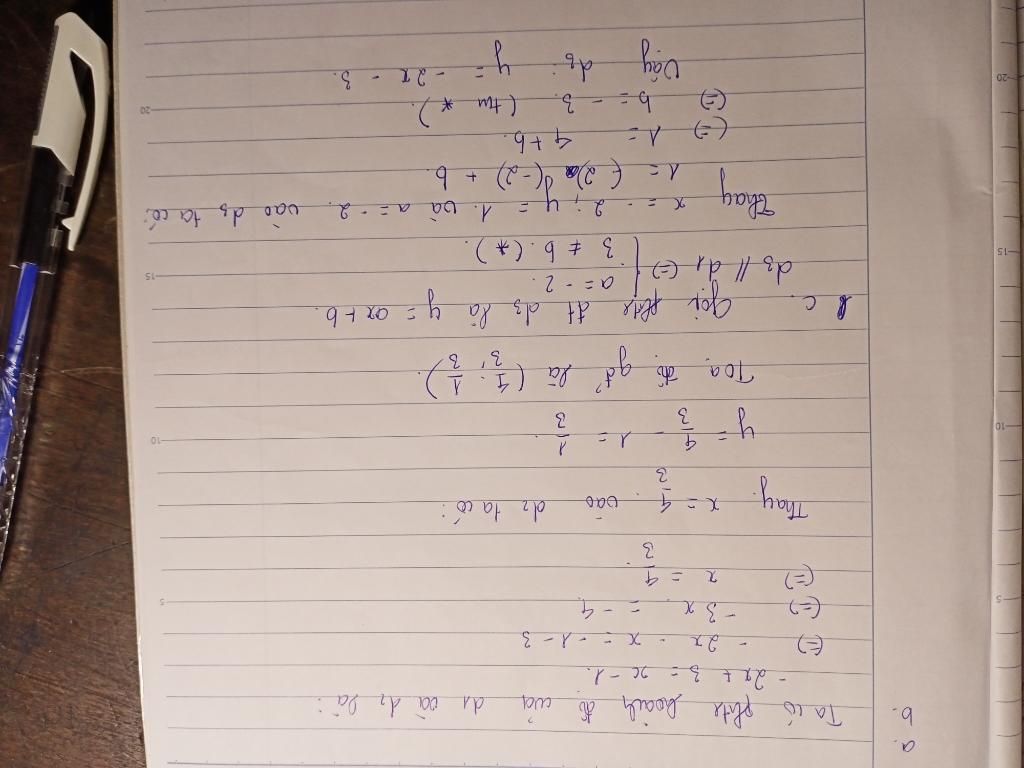 a.
b. Ta có ptr hoành độ của d1 và d2 là:
- 2x + 3 = x - 1.
(=) - 2x - x = - 1 - 3
(=) - 3x = - 4
(=) x = 4/3
Thay x = 4/3 vào d2 ta có:
y = 4/3 - 1 = 1/3
Toạ độ gđ là (4/3, 1/3).
c. Gọi ptr đt d3 là y = ax + b.
d3 // d1 (=) { a = - 2
3 ≠ b. (*)
Thay x = - 2, y = 1. và a = - 2. vào d3 ta có:
1 = (-2) (-2) + b
(=) 1 = 4 + b.
(=) b = - 3. (tm *).
Vậy d3: y = - 2x - 3.
5
10
15
20
5
10
20